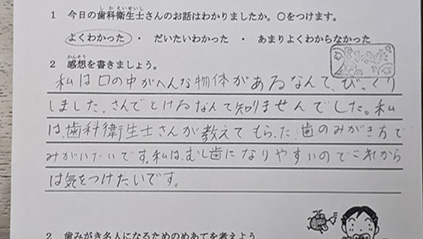 1 今日の歯科衛生士さんのお話はわかりましたか。〇をつけます。
よくわかった ・ だいたいわかった ・ あまりよくわからなかった
2 感想を書きましょう。
私は口の中がへんな物体があるなんて、びっくり
しました。さんでとけるなんて知りませんでした。私
は、歯科衛生士さんが教えてもらった歯のみがき方で
みがいたいです。私は、むし歯になりやすいのでこれから
は気をつけたいです。
2 歯みがき名人になるためのめあてを考えよう